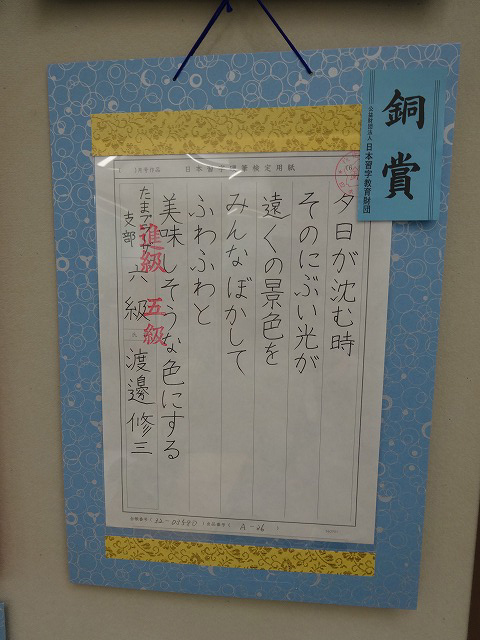 銅賞
公益財団法人 日本習字教育財団
日本習字硬筆検定用紙
夕日が沈む時
そのにぶい光が
遠くの景色を
みんなぼかして
ふわふわと
美味しそうな色にする
進級 五級
支部
六級 渡邉修三
A-06